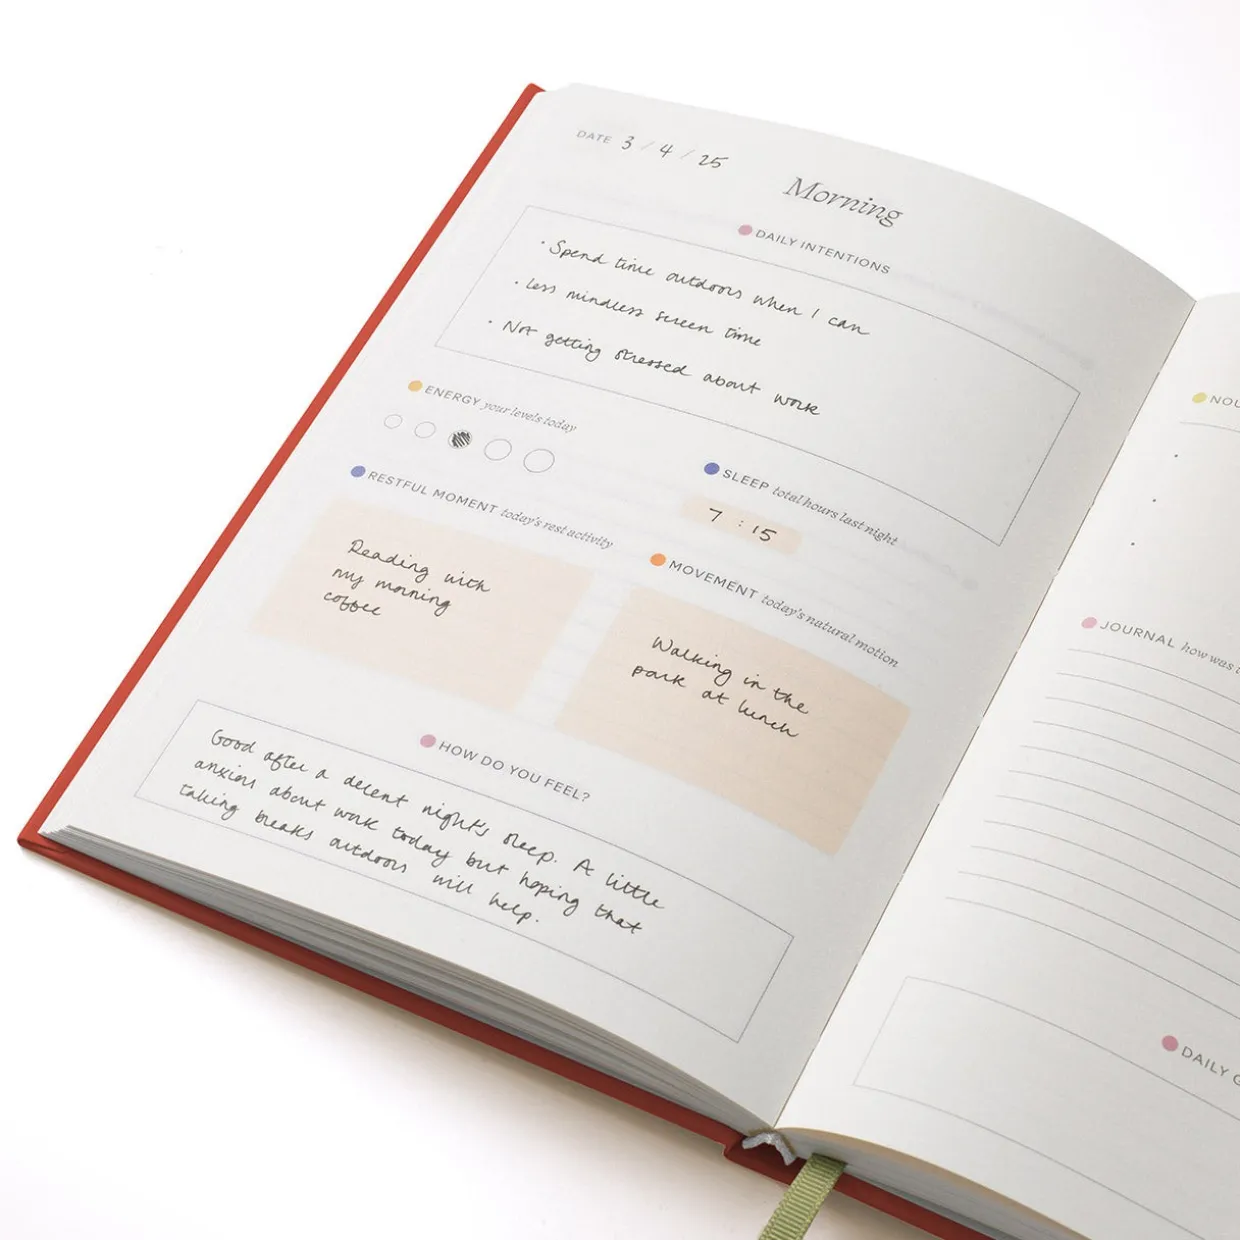 DATE 3 / 4 / 25
Morning
DAILY INTENTIONS
· Spend time outdoors when I can
· Less mindless screen time
· Not getting stressed about work
ENERGY your levels today
SLEEP total hours last night
7 : 15
RESTFUL MOMENT today's rest activity
Reading with
my morning
coffee
MOVEMENT today's natural motion
Walking in the
park at lunch
HOW DO YOU FEEL?
Good after a decent night's sleep. A little
anxious about work today but hoping that
taking breaks outdoors will help.
NOU
JOURNAL how was
DAILY G